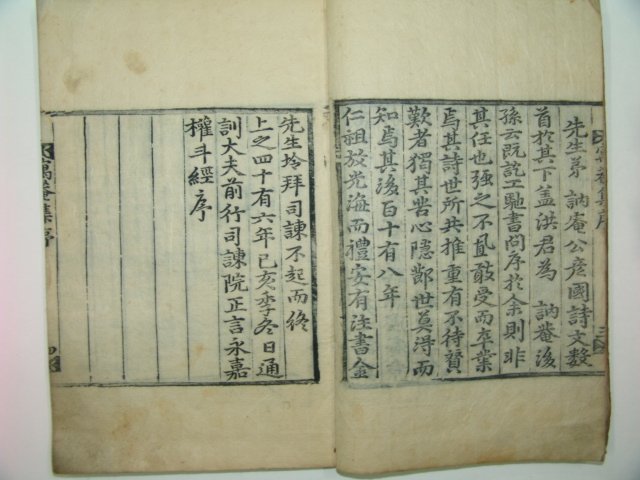 先生弟 訥庵公彦國詩文數
首於其下盖洪君為 訥菴後
孫云既訖工馳書問序於余則非
其任也強之不敢受而卒業
焉其詩世所共推重有不待贊
歎者獨其苦心隱鄙世莫得而
知焉其後百十有八年
仁祖放光海而禮安有注書金
先生坽拜司諫不起而終
上之四十有六年己亥季冬日通
訓大夫前行司諫院正言永嘉
權斗經序
萬菴集序
四
集序
三